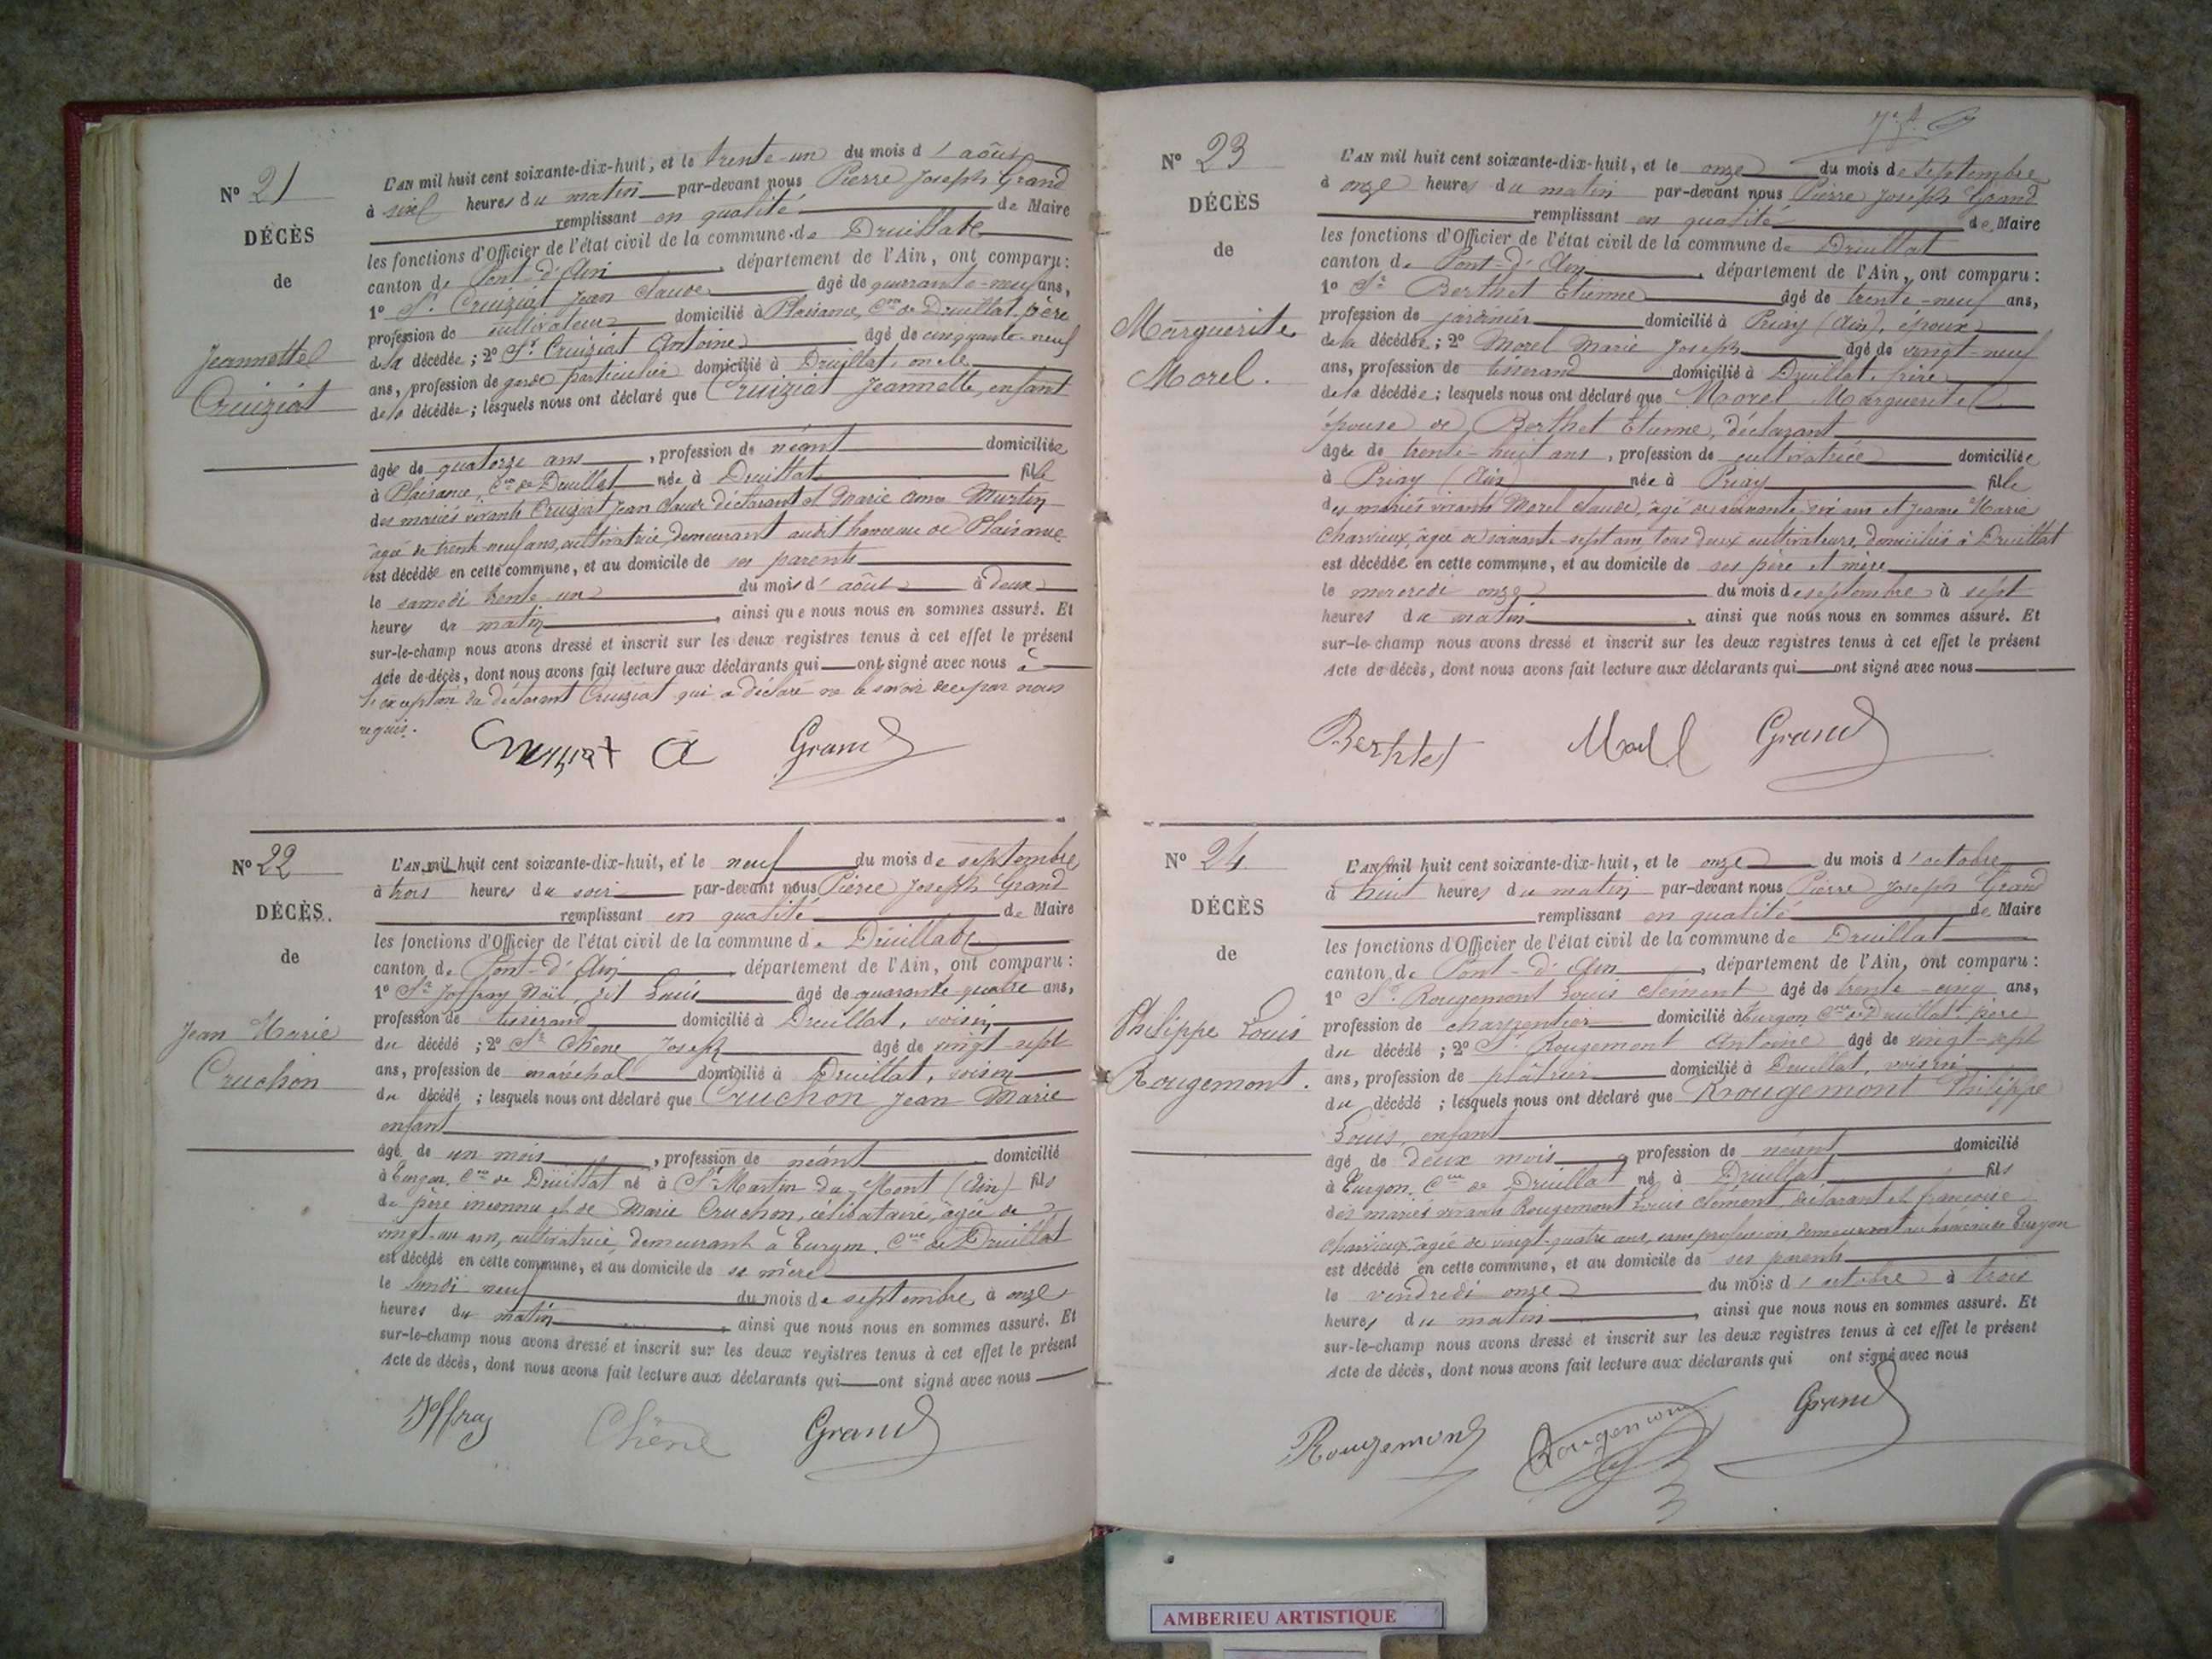 N° 21
DÉCÈS
de
Jeannette
Cruiziat
L'AN mil huit cent soixante-dix-huit, et le trente-un du mois d'août
à six heures du matin par-devant nous Pierre Joseph Grand
remplissant en qualité de Maire
les fonctions d'Officier de l'état civil de la commune de Druillat
canton de Pont-d'Ain, département de l'Ain, ont comparu :
1° Sr. Cruiziat Jean Claude âgé de quarante-neuf ans,
profession de cultivateur domicilié à Plaisance, Cne de Druillat, père
de la décédée ; 2° Sr. Cruiziat Antoine âgé de cinquante-neuf
ans, profession de garde particulier domicilié à Druillat, oncle
de la décédée ; lesquels nous ont déclaré que Cruiziat Jeannette, enfant
âgée de quatorze ans, profession de néant domiciliée
à Plaisance, Cne de Druillat née à Druillat fille
des mariés vivants Cruiziat Jean Claude déclarant et Marie Murtin
âgée de trente-neuf ans, cultivatrice, demeurant audit hameau de Plaisance
est décédée en cette commune, et au domicile de ses parents
le samedi trente-un du mois d'août à deux
heures du matin, ainsi que nous nous en sommes assuré. Et
sur-le-champ nous avons dressé et inscrit sur les deux registres tenus à cet effet le présent
Acte de décès, dont nous avons fait lecture aux déclarants qui ont signé avec nous à
l'exception du déclarant Cruiziat qui a déclaré ne le savoir de ce par nous
requis.
Cruiziat A Grand
N° 22
DÉCÈS.
de
Jean Marie
Cruchon
L'AN mil huit cent soixante-dix-huit, et le neuf du mois de septembre
à trois heures du soir par-devant nous Pierre Joseph Grand
remplissant en qualité de Maire
les fonctions d'Officier de l'état civil de la commune de Druillat
canton de Pont-d'Ain, département de l'Ain, ont comparu :
1° Sr. Joffray Noël dit Louis âgé de quarante-quatre ans,
profession de tisserand domicilié à Druillat, voisin
du décédé ; 2° Sr. Chêne Joseph âgé de vingt-sept
ans, profession de maréchal domicilié à Druillat, voisin
du décédé ; lesquels nous ont déclaré que Cruchon Jean Marie
enfant
âgé de un mois, profession de néant domicilié
à Turgon, Cne de Druillat né à St Martin du Mont (Ain) fils
de père inconnu et de Marie Cruchon, célibataire, âgée de
vingt-un an, cultivatrice, demeurant à Turgon, Cne de Druillat
est décédé en cette commune, et au domicile de sa mère
le lundi neuf du mois de septembre à onze
heures du matin, ainsi que nous nous en sommes assuré. Et
sur-le-champ nous avons dressé et inscrit sur les deux registres tenus à cet effet le présent
Acte de décès, dont nous avons fait lecture aux déclarants qui ont signé avec nous
Joffray Chêne Grand
N° 23
DÉCÈS
de
Marguerite
Morel.
L'AN mil huit cent soixante-dix-huit, et le onze du mois de septembre
à onze heures du matin par-devant nous Pierre Joseph Grand
remplissant en qualité de Maire
les fonctions d'Officier de l'état civil de la commune de Druillat
canton de Pont-d'Ain, département de l'Ain, ont comparu :
1° Sr. Berthet Etienne âgé de trente-neuf ans,
profession de jardinier domicilié à Priay (Ain), époux
de la décédée ; 2° Morel Marie Joseph âgé de vingt-neuf
ans, profession de tisserand domicilié à Druillat, frère
de la décédée ; lesquels nous ont déclaré que Morel Marguerite
épouse de Berthet Etienne, déclarant
âgée de trente-huit ans, profession de cultivatrice domiciliée
à Priay (Ain) née à Priay fille
des mariés vivants Morel Claude, âgé de soixante-six ans et Jeanne Marie
Charvieux, âgée de soixante-sept ans, tous deux cultivateurs, domiciliés à Druillat
est décédée en cette commune, et au domicile de ses père et mère
le mercredi onze du mois de septembre à sept
heures du matin, ainsi que nous nous en sommes assuré. Et
sur-le-champ nous avons dressé et inscrit sur les deux registres tenus à cet effet le présent
Acte de décès, dont nous avons fait lecture aux déclarants qui ont signé avec nous
Berthet Morel Grand
N° 24
DÉCÈS
de
Philippe Louis
Rougemont.
L'AN mil huit cent soixante-dix-huit, et le onze du mois d'octobre
à huit heures du matin par-devant nous Pierre Joseph Grand
remplissant en qualité de Maire
les fonctions d'Officier de l'état civil de la commune de Druillat
canton de Pont-d'Ain, département de l'Ain, ont comparu :
1° Sr. Rougemont Louis Clément âgé de trente-cinq ans,
profession de charpentier domicilié à Turgon Cne de Druillat père
du décédé ; 2° Sr Rougemont Antoine âgé de vingt-sept
ans, profession de plâtrier domicilié à Druillat, voisin
du décédé ; lesquels nous ont déclaré que Rougemont Philippe
Louis, enfant
âgé de deux mois, profession de néant domicilié
à Turgon, Cne de Druillat né à Druillat fils
des mariés vivants Rougemont Louis Clément, déclarant et françoise
Charvieux, âgée de vingt-quatre ans, sans profession, demeurant au hameau de Turgon
est décédé en cette commune, et au domicile de ses parents
le vendredi onze du mois d'octobre à trois
heures du matin, ainsi que nous nous en sommes assuré. Et
sur-le-champ nous avons dressé et inscrit sur les deux registres tenus à cet effet le présent
Acte de décès, dont nous avons fait lecture aux déclarants qui ont signé avec nous
Rougemont Rougemont Grand
AMBERIEU ARTISTIQUE